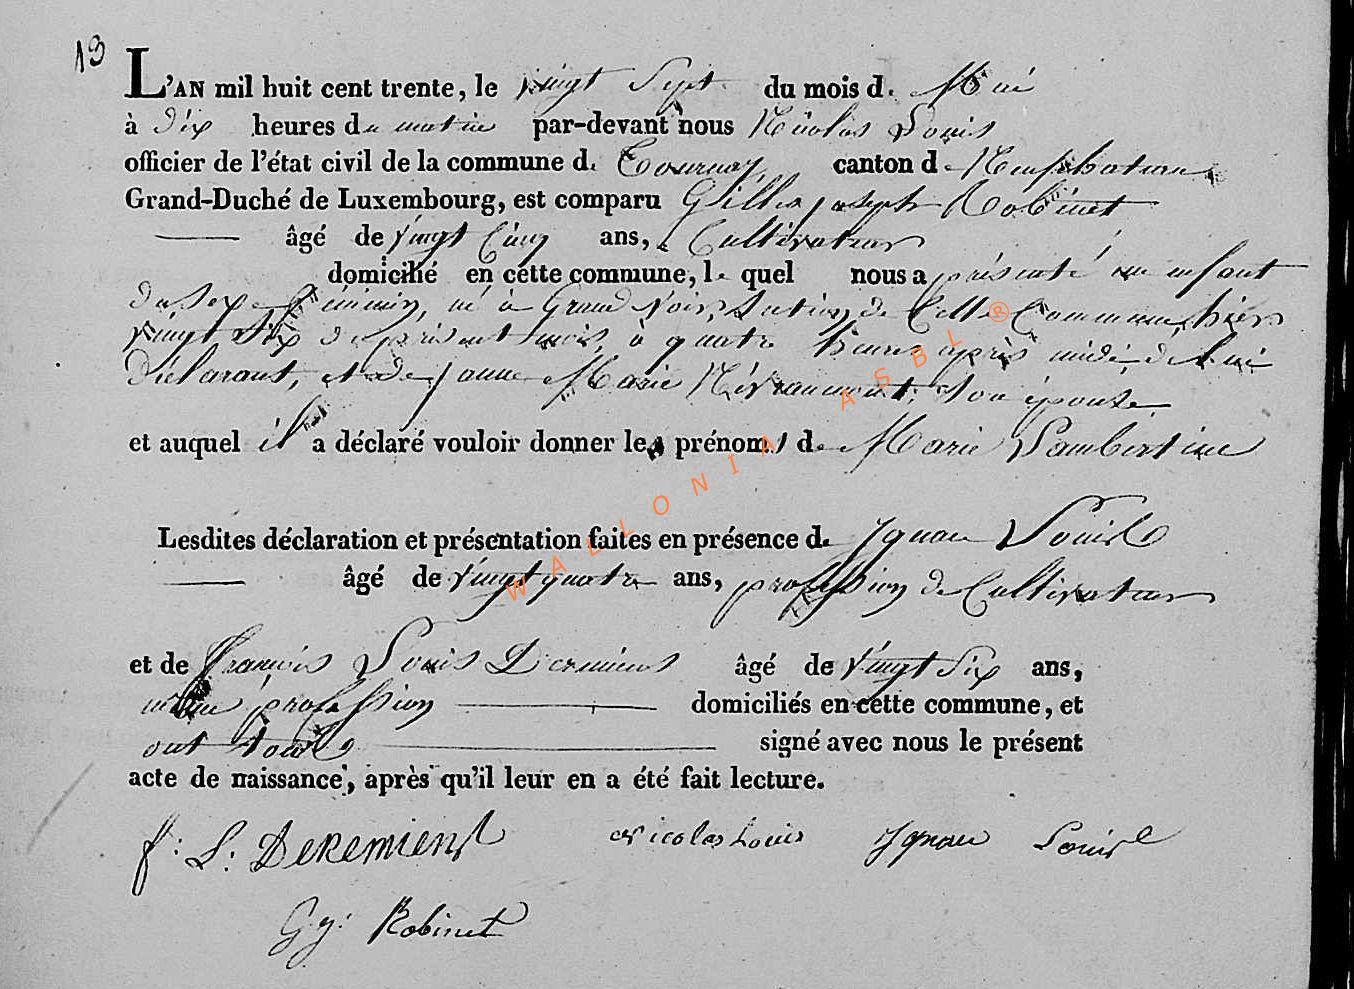 13
L'AN mil huit cent trente, le vingt Sept du mois de Mai
à dix heures du matin par-devant nous Nicolas Louis
officier de l'état civil de la commune de Tournay, canton de Neufchateau
Grand-Duché de Luxembourg, est comparu Gilles joseph Robinet
âgé de vingt Cinq ans, Cultivateur
domicilié en cette commune, le quel nous a présenté un enfant
du sexe féminin, né à Grand Voir, Section de Cette Commune, hier
vingt Six du présent mois, à quatre heures après midi, de lui
Déclarant, et de Jeanne Marie Névraumont, son épouse
et auquel il a déclaré vouloir donner les prénoms de Marie Lambertine
Lesdites déclaration et présentation faites en présence de Ignace Louis
âgé de vingt quatre ans, profession de Cultivateur
et de François Louis Dermiens âgé de vingt Six ans,
même profession domiciliés en cette commune, et
ont tous signé avec nous le présent
acte de naissance, après qu'il leur en a été fait lecture.
f: L: DEREMIENS Nicolas Louis Ignace Louis
G. j: Robinet
WALLONIA ASBL ®